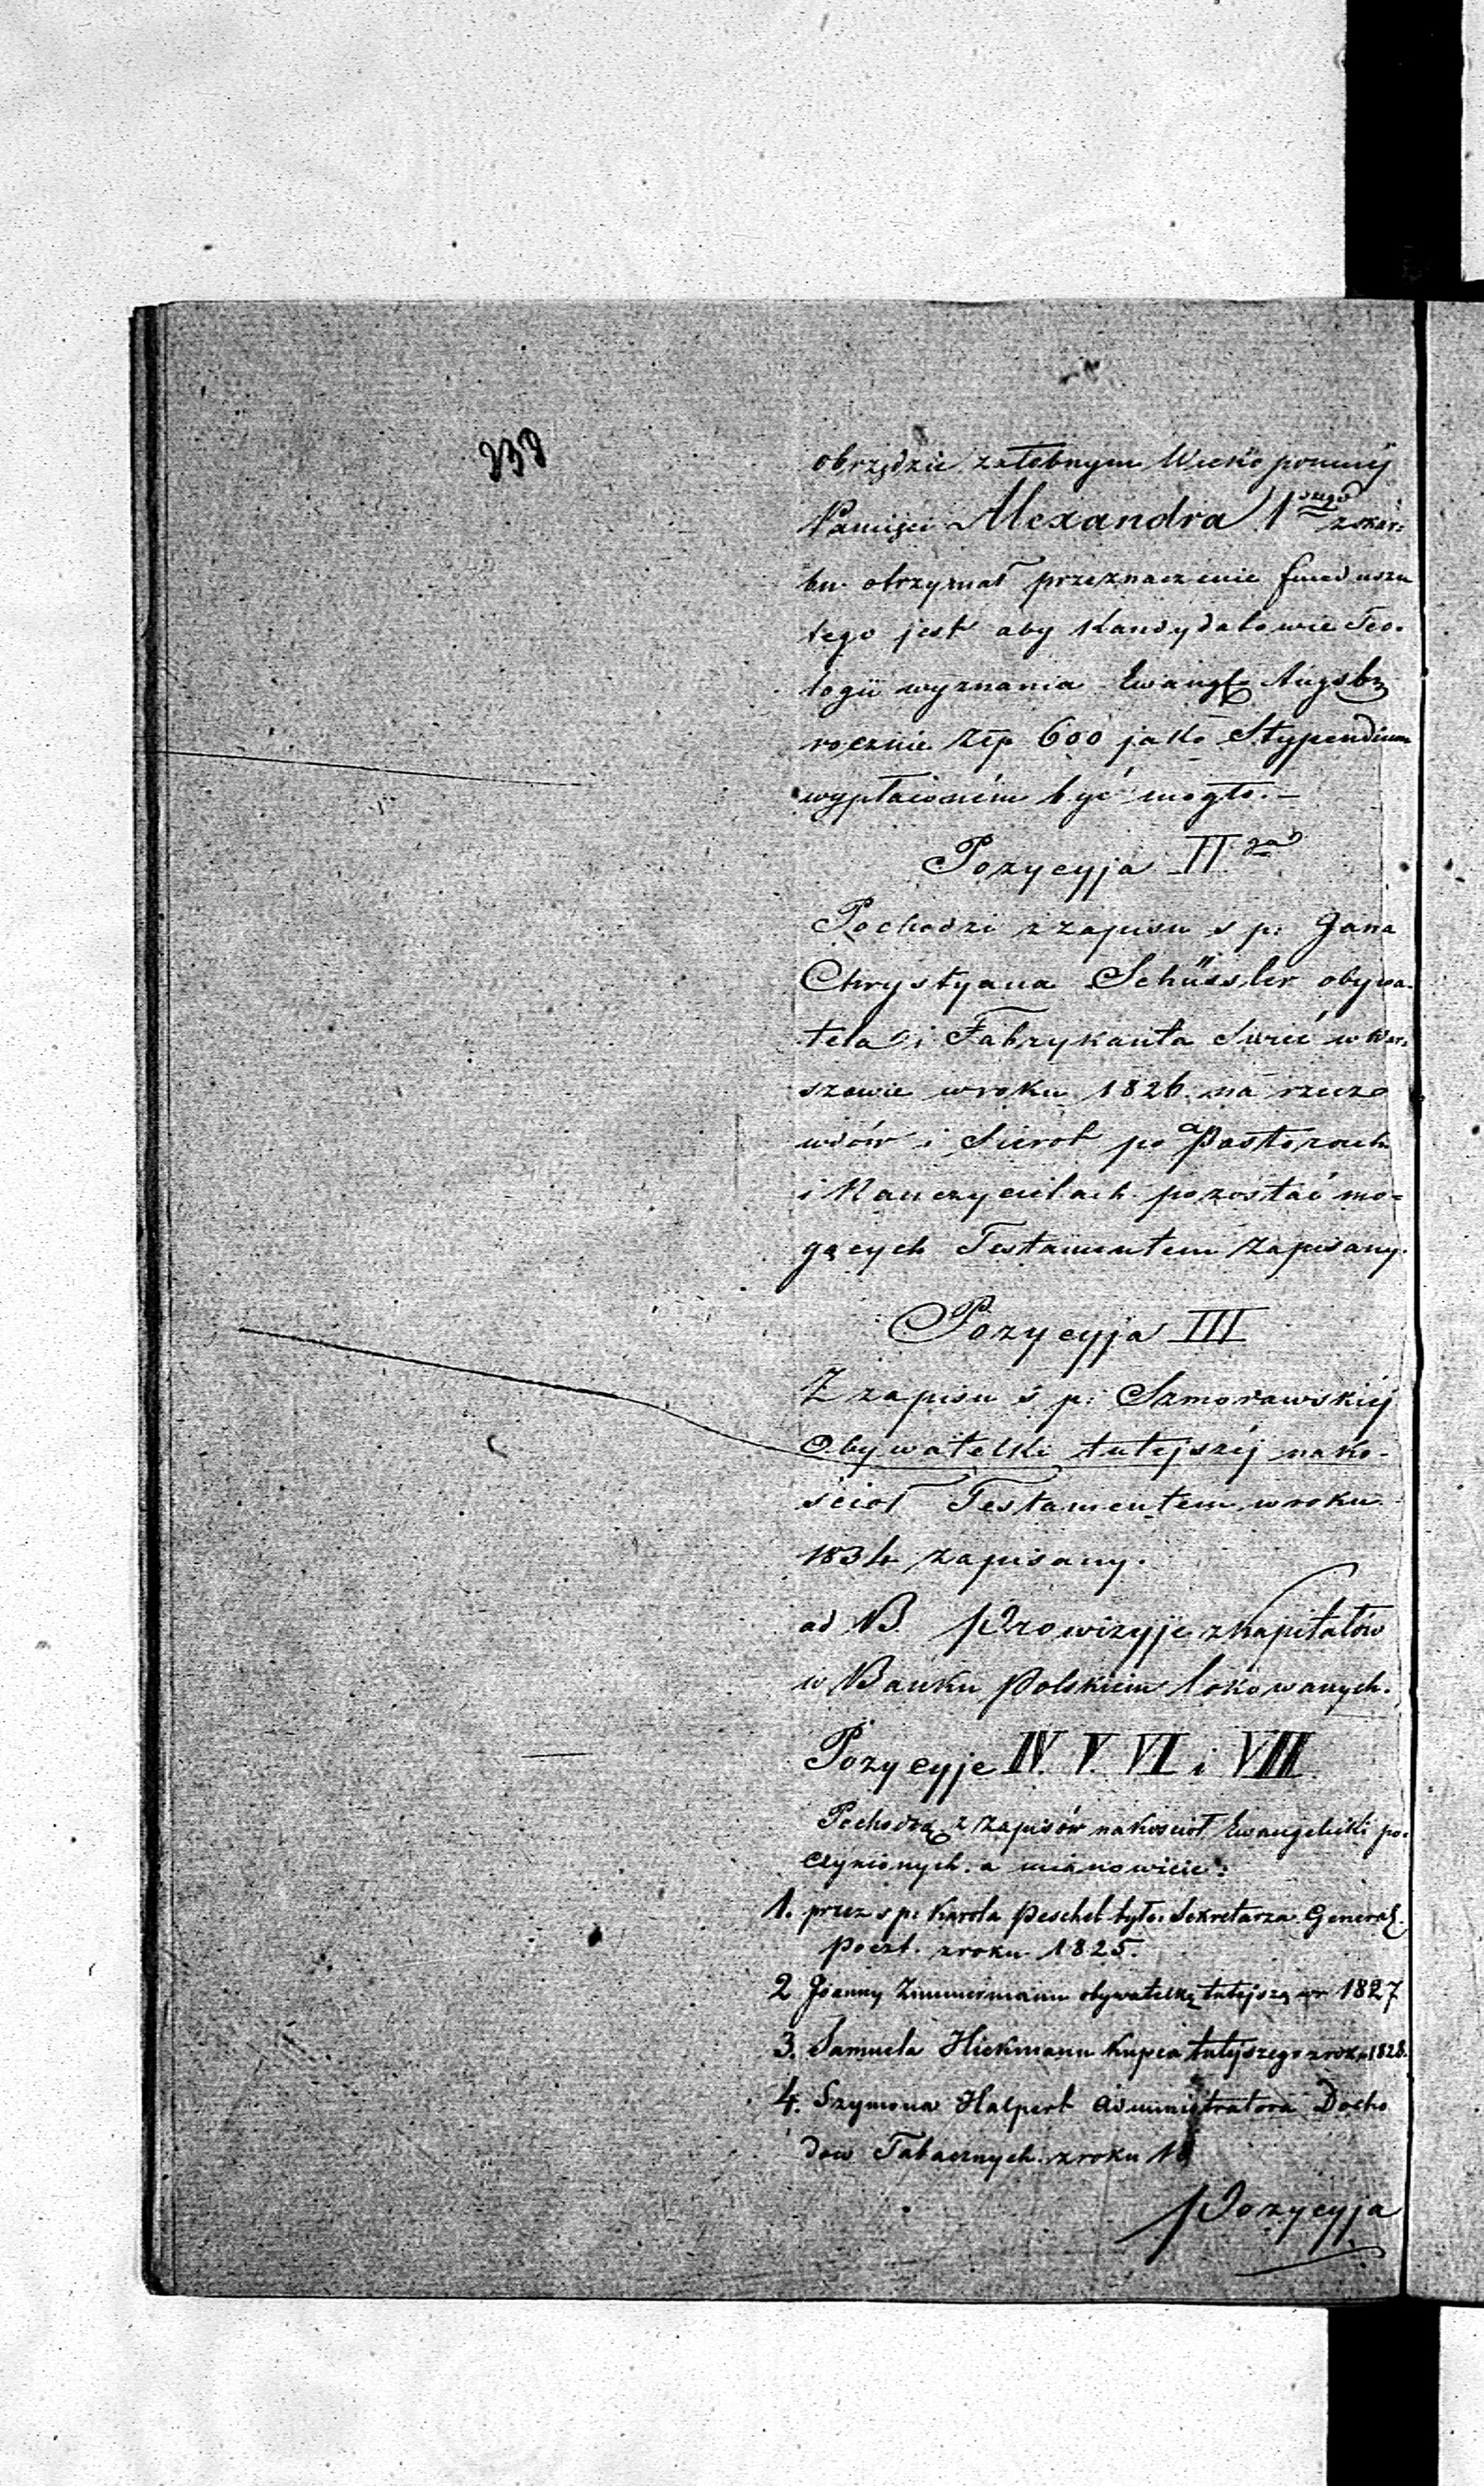 obrzędzie żałobnym Wiekopomnéj
Pamięci Alexandra 1szego z skar:
bu otrzymał przeznaczenie funduszu
tego jest aby Kandydatowie Teo.
logii wyznania Ewang. Augsb.
rocznie Złp 600 jako Stypendium
wypłaconém być mogło. —
Pozycyja II ga
Pochodzi z zapisu s p: Jana
Chrystyana Schüssler obywa.
tela i Fabrykanta Swiec w War:
szawie w roku 1826 na rzecz
wdów i Sierot po Pastorach
i Nauczycielach pozostać mo=
gących Testamentem zapisany.
Pozycyja III
Z zapisu ś p: Szmorawskiéj
Obywatelki tutejszéj na ko-
ścioł Testamentem w roku
1834 zapisany.
ad B. Prowizyje z kapitałów
w Banku Polskim lokowanych.
Pozycyje IV. V. VI i VIII.
Pochodzą z zapisów na kościoł Ewangelicki po.
czynionych. a mianowicie:
1. przez s p: Karola Peschel byłe: Sekretarza General.
Poczt. z roku 1825.
2 Joanny Zimmermann obywatelkę tutejszą w r 1827
3. Samuela Hickmann Kupca tutejszego z roku 1828.
4. Szymona Halpert Administratora Docho
dow Tabacznych z roku 18
Pozycyja